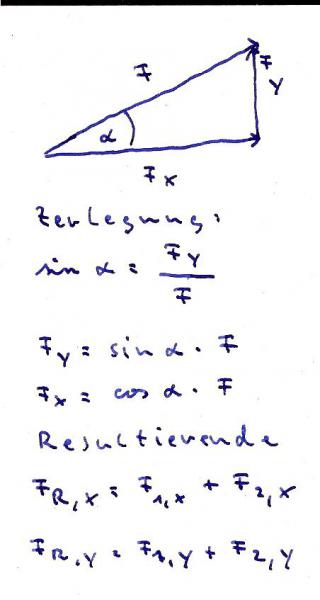 F
F
y
α
Fx
Zerlegung:
sin α = Fy / F
Fy = sin α · F
Fx = cos α · F
Resultierende
FR,x = F1,x + F2,x
FR,y = F1,y + F2,y